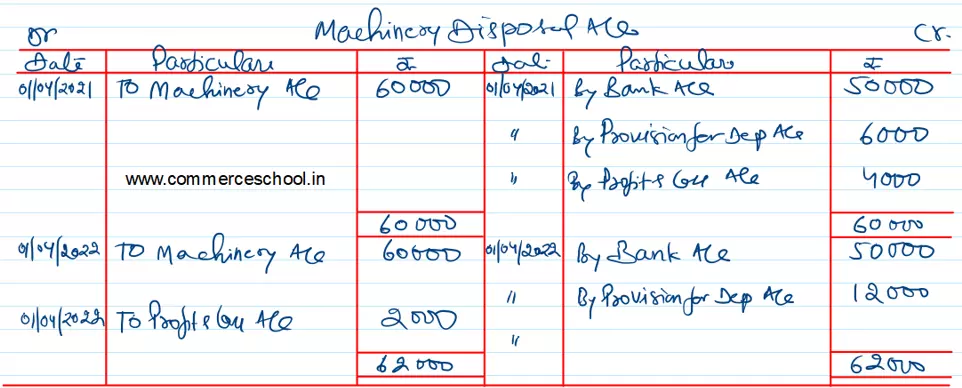 Machinery Disposal A/c
Dr Cr.
Date Particulars ₹ Date Particulars ₹
01/04/2021 To Machinery A/c 60000 01/04/2021 By Bank A/c 50000
" By Provision for Dep A/c 6000
www.commerceschool.in " By Profit & Loss A/c 4000
60000 60000
01/04/2022 To Machinery A/c 60000 01/04/2022 By Bank A/c 50000
" By Provision for Dep A/c 12000
01/04/2022 To Profit & Loss A/c 2000 "
62000 62000